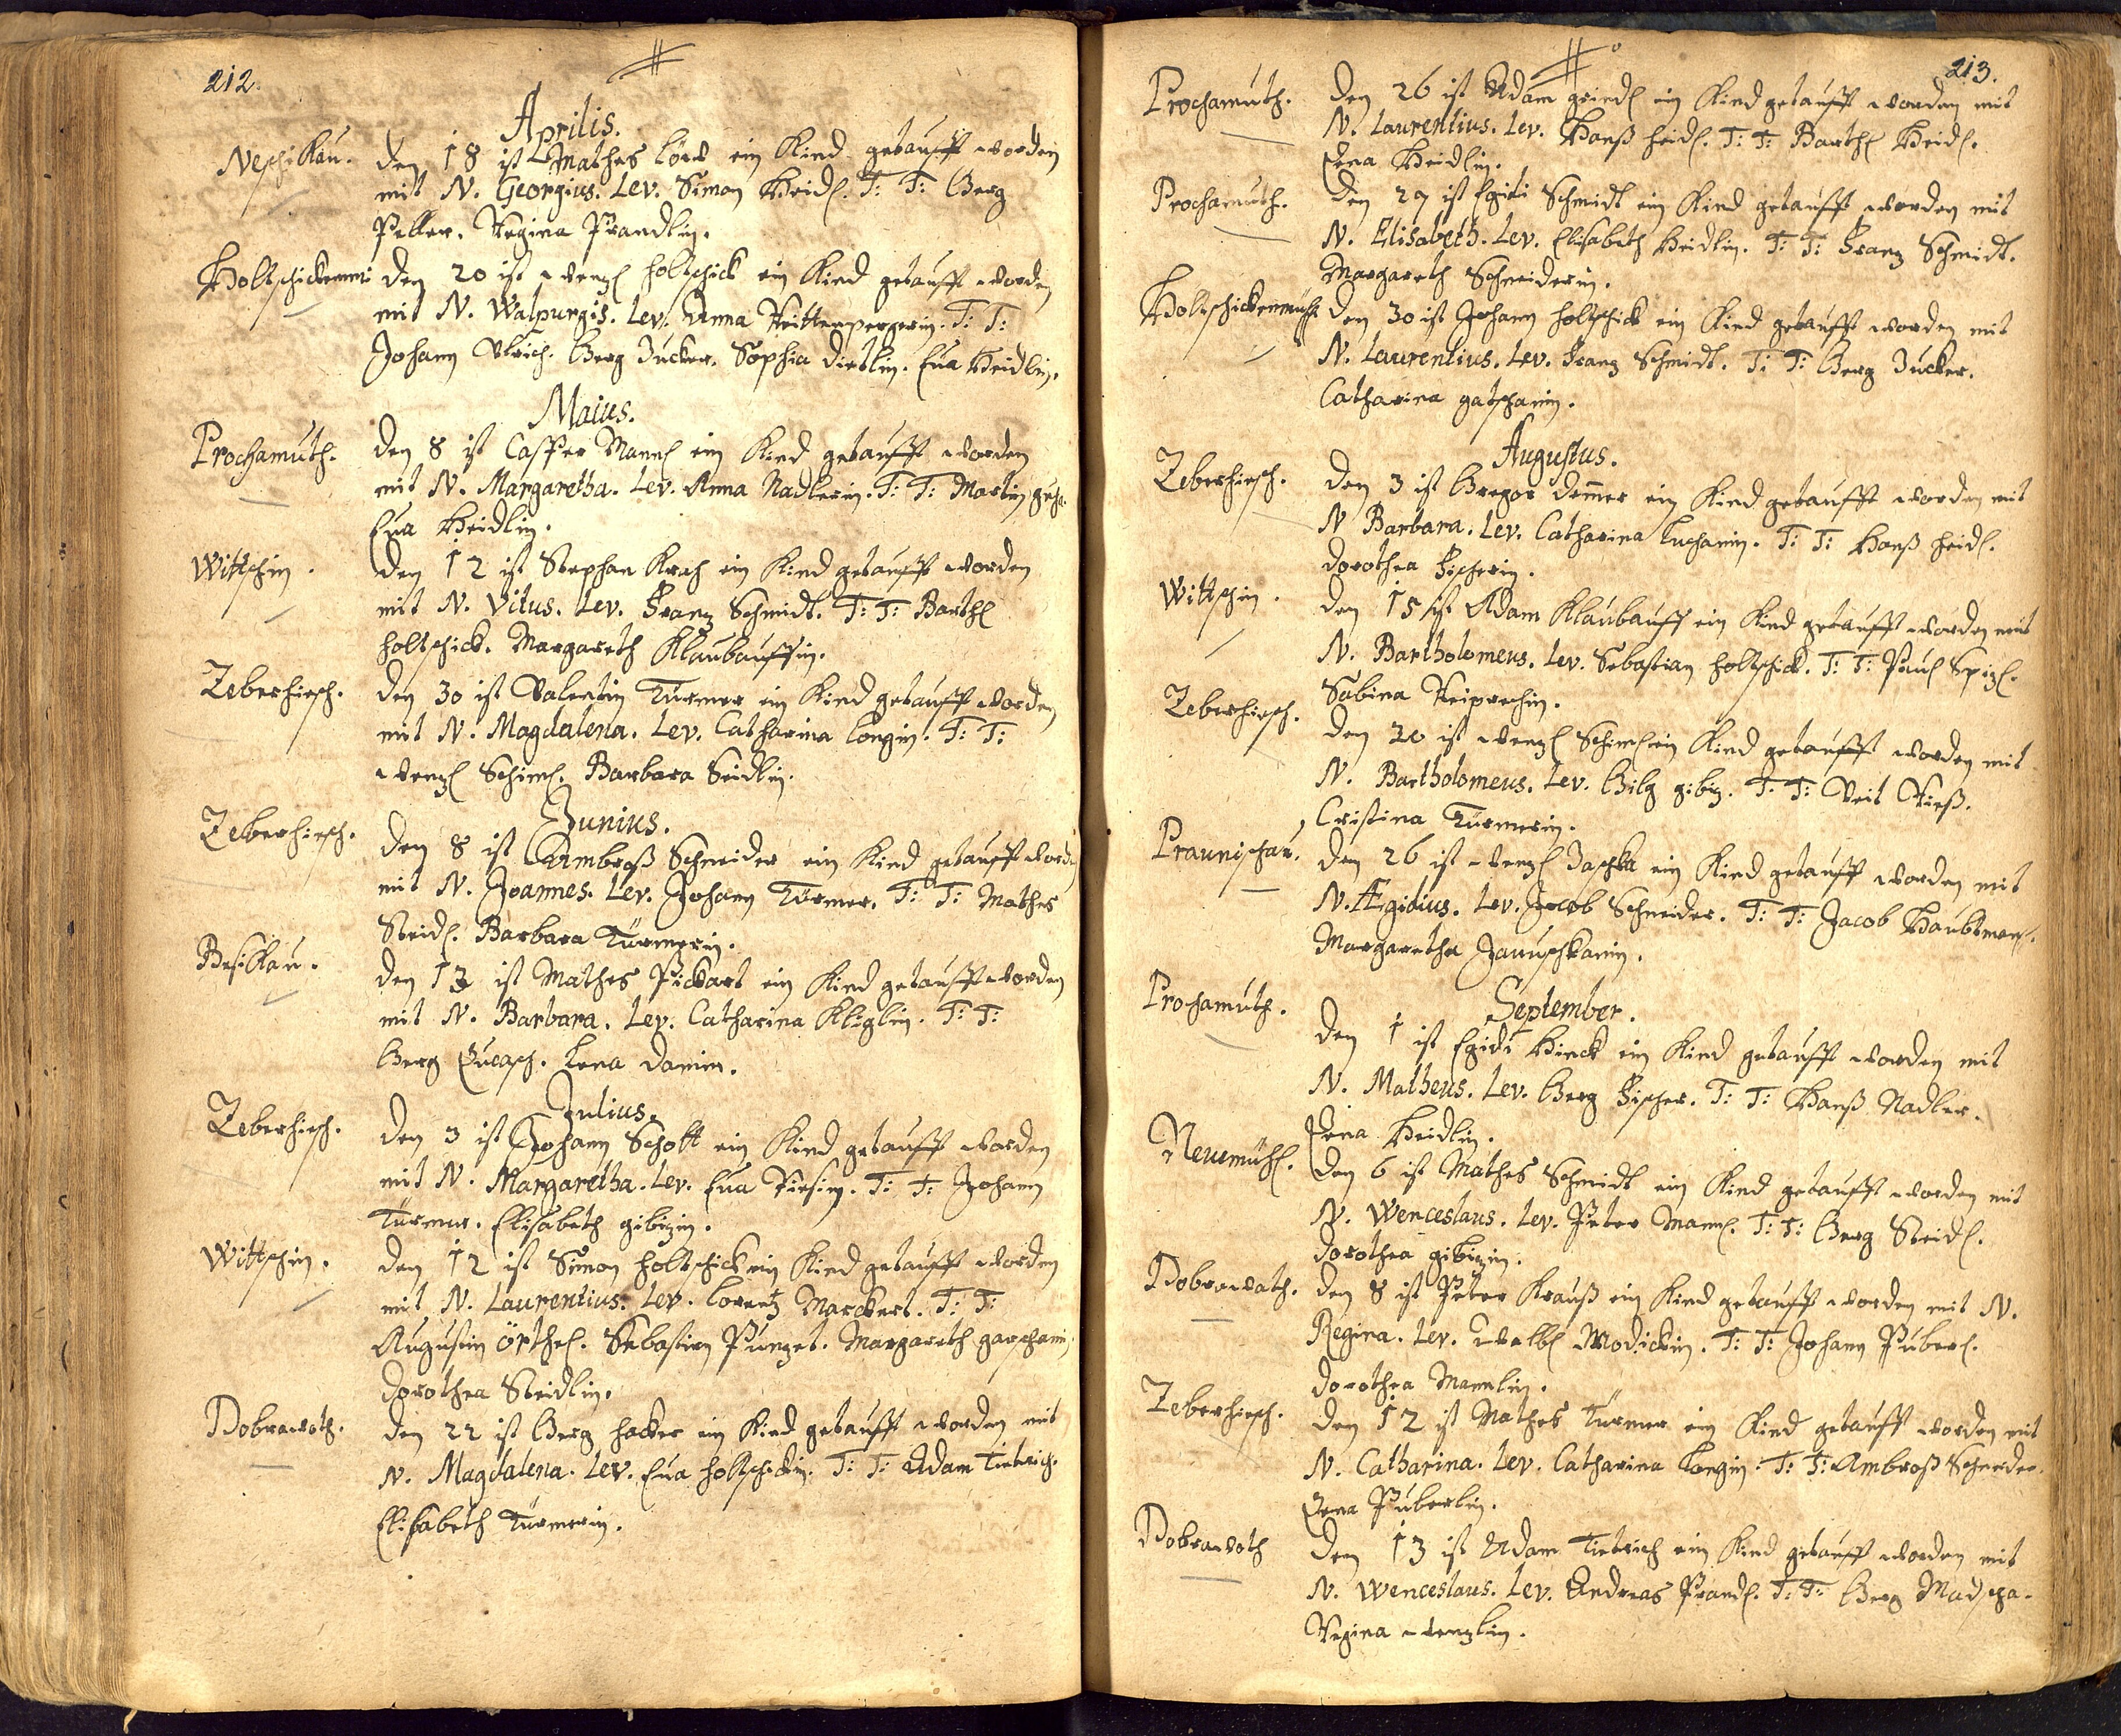 212.
Aprilis.
Neschikau. Den 18 ist Mathes Lörd ein Kind getaufft worden
mit N. Georgius. Lev. Simon Heidl. T: T: Gerg
Peller. Regina Prandlin.
Holtschickenmi Den 20 ist Wenzl Holtschick ein Kind getaufft worden
mit N. Walpurgis. Lev. Anna Rittenpergerin. T: T:
Johann Ulrich. Gerg Zucker. Sophia Dietlin. Eua Heidlin.
Maius.
Prochamuth. Den 8 ist Casper Mannl ein Kind getaufft worden
mit N. Margaretha. Lev. Anna Nadlerin. T: T: Martin
Eua Heidlin.
Wittschin. Den 12 ist Stephan Krah ein Kind getaufft worden
mit N. Vitus. Lev. Franz Schmidt. T: T: Barthl
Holtschick. Margareth Klaubauffin.
Zeberhiesch. Den 30 ist Valentin Türmer ein Kind getaufft worden
mit N. Magdalena. Lev. Catharina Longin. T: T:
Wenzl Schiml. Barbara Seidlin.
Junius.
Zeberhiesch. Den 8 ist Ambroß Schneider ein Kind getaufft word
mit N. Joannes. Lev. Johann Türmer. T: T: Mathes
Steidl. Barbara Türmerin.
Besikau. Den 13 ist Mathes Pickart ein Kind getaufft worden
mit N. Barbara. Lev. Catharina Kliglin. T: T:
Gerg Lucasch. Lena Danim.
Julius.
Zeberhiesch. Den 3 ist Johann Schott ein Kind getaufft worden
mit N. Margaretha. Lev. Eua Riesin. T: T: Johann
Türmer. Elisabeth Gibizin.
Wittschin. Den 12 ist Simon Holtschick ein Kind getaufft worden
mit N. Laurentius. Lev. Lorentz Marckert. T: T:
Augustin Örthel. Sebastian Punzet. Margareth Garschani
Dorothea Steidlin.
Dobrawoth. Den 22 ist Gerg Hacker ein Kind getaufft worden mit
N. Magdalena. Lev. Eua Holtschickin. T: T: Adam Tietrich.
Elisabeth Türmerin.
213.
Prochamuth. Den 26 ist Adam Griedl ein Kind getaufft worden mit
N. Laurentius. Lev. Hanß Heidl. T: T: Barthl Heidl.
Lena Heidlin.
Prochamuth. Den 29 ist Egidi Schmidt ein Kind getaufft worden mit
N. Elisabeth. Lev. Elisabeth Heidlin. T: T: Franz Schmidt.
Margareth Schneiderin.
Holtschickenmühl Den 30 ist Johann Holtschick ein Kind getaufft worden mit
N. Laurentius. Lev. Franz Schmidt. T: T: Gerg Zucker.
Catharina Gatschanin.
Augustus.
Zeberhiesch. Den 3 ist Gregor Demer ein Kind getaufft worden mit
N Barbara. Lev. Catharina Tuchanin. T: T: Hanß Heidl.
Dorothea Fischerin.
Wittschin. Den 15 ist Adam Klaubauff ein Kind getaufft worden mit
N. Bartholomeus. Lev. Sebastian Holtschick. T: T: Paul Spizl.
Sabina Reiprechin.
Zeberhiesch. Den 20 ist Wenzl Schiml ein Kind getaufft worden mit
N. Bartholomeus. Lev. Gilg Gibiz. T: T: Veit Rieß.
Cristina Türmerin.
Praunischau. Den 26 ist Wenzl Jaschka ein Kind getaufft worden mit
N. Ægidius. Lev. Jacob Schneider. T: T: Jacob Haubtman.
Margaretha Januschkanin.
September.
Prochamuth. Den 1 ist Egidi Hirck ein Kind getaufft worden mit
N. Matheus. Lev. Gerg Fischer. T: T: Hanß Nadler.
Lena Heidlin.
Neuemühl. Den 6 ist Mathes Schmidt ein Kind getaufft worden mit
N. Wenceslaus. Lev. Peter Mannl. T: T: Gerg Steidl.
Dorothea Gibizin.
Dobrawath. Den 8 ist Peter Krauß ein Kind getaufft worden mit N.
Regina. Lev. Walbl Wodickin. T: T: Johann Puberl.
Dorothea Mannlin.
Zeberhiesch. Den 12 ist Mathes Türmer ein Kind getaufft worden mit
N. Catharina. Lev. Catharina Longin. T: T: Ambroß Schneider.
Lena Puberlin.
Dobrawoth Den 13 ist Adam Tietrich ein Kind getaufft worden mit
N. Wenceslaus. Lev. Andreas Prandl. T: T: Gerg Madscha.
Regina Wenzlin.